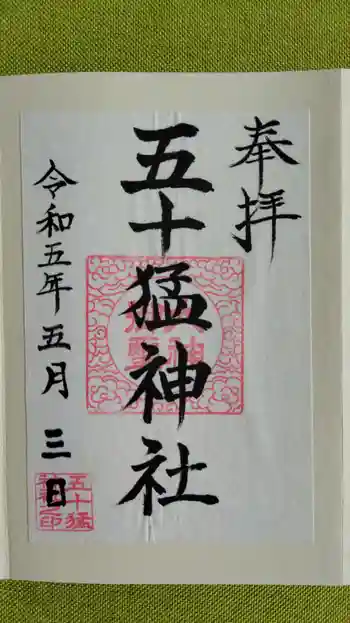 奉拝
五十猛神社
令和五年五月三日
五十猛
神社之印